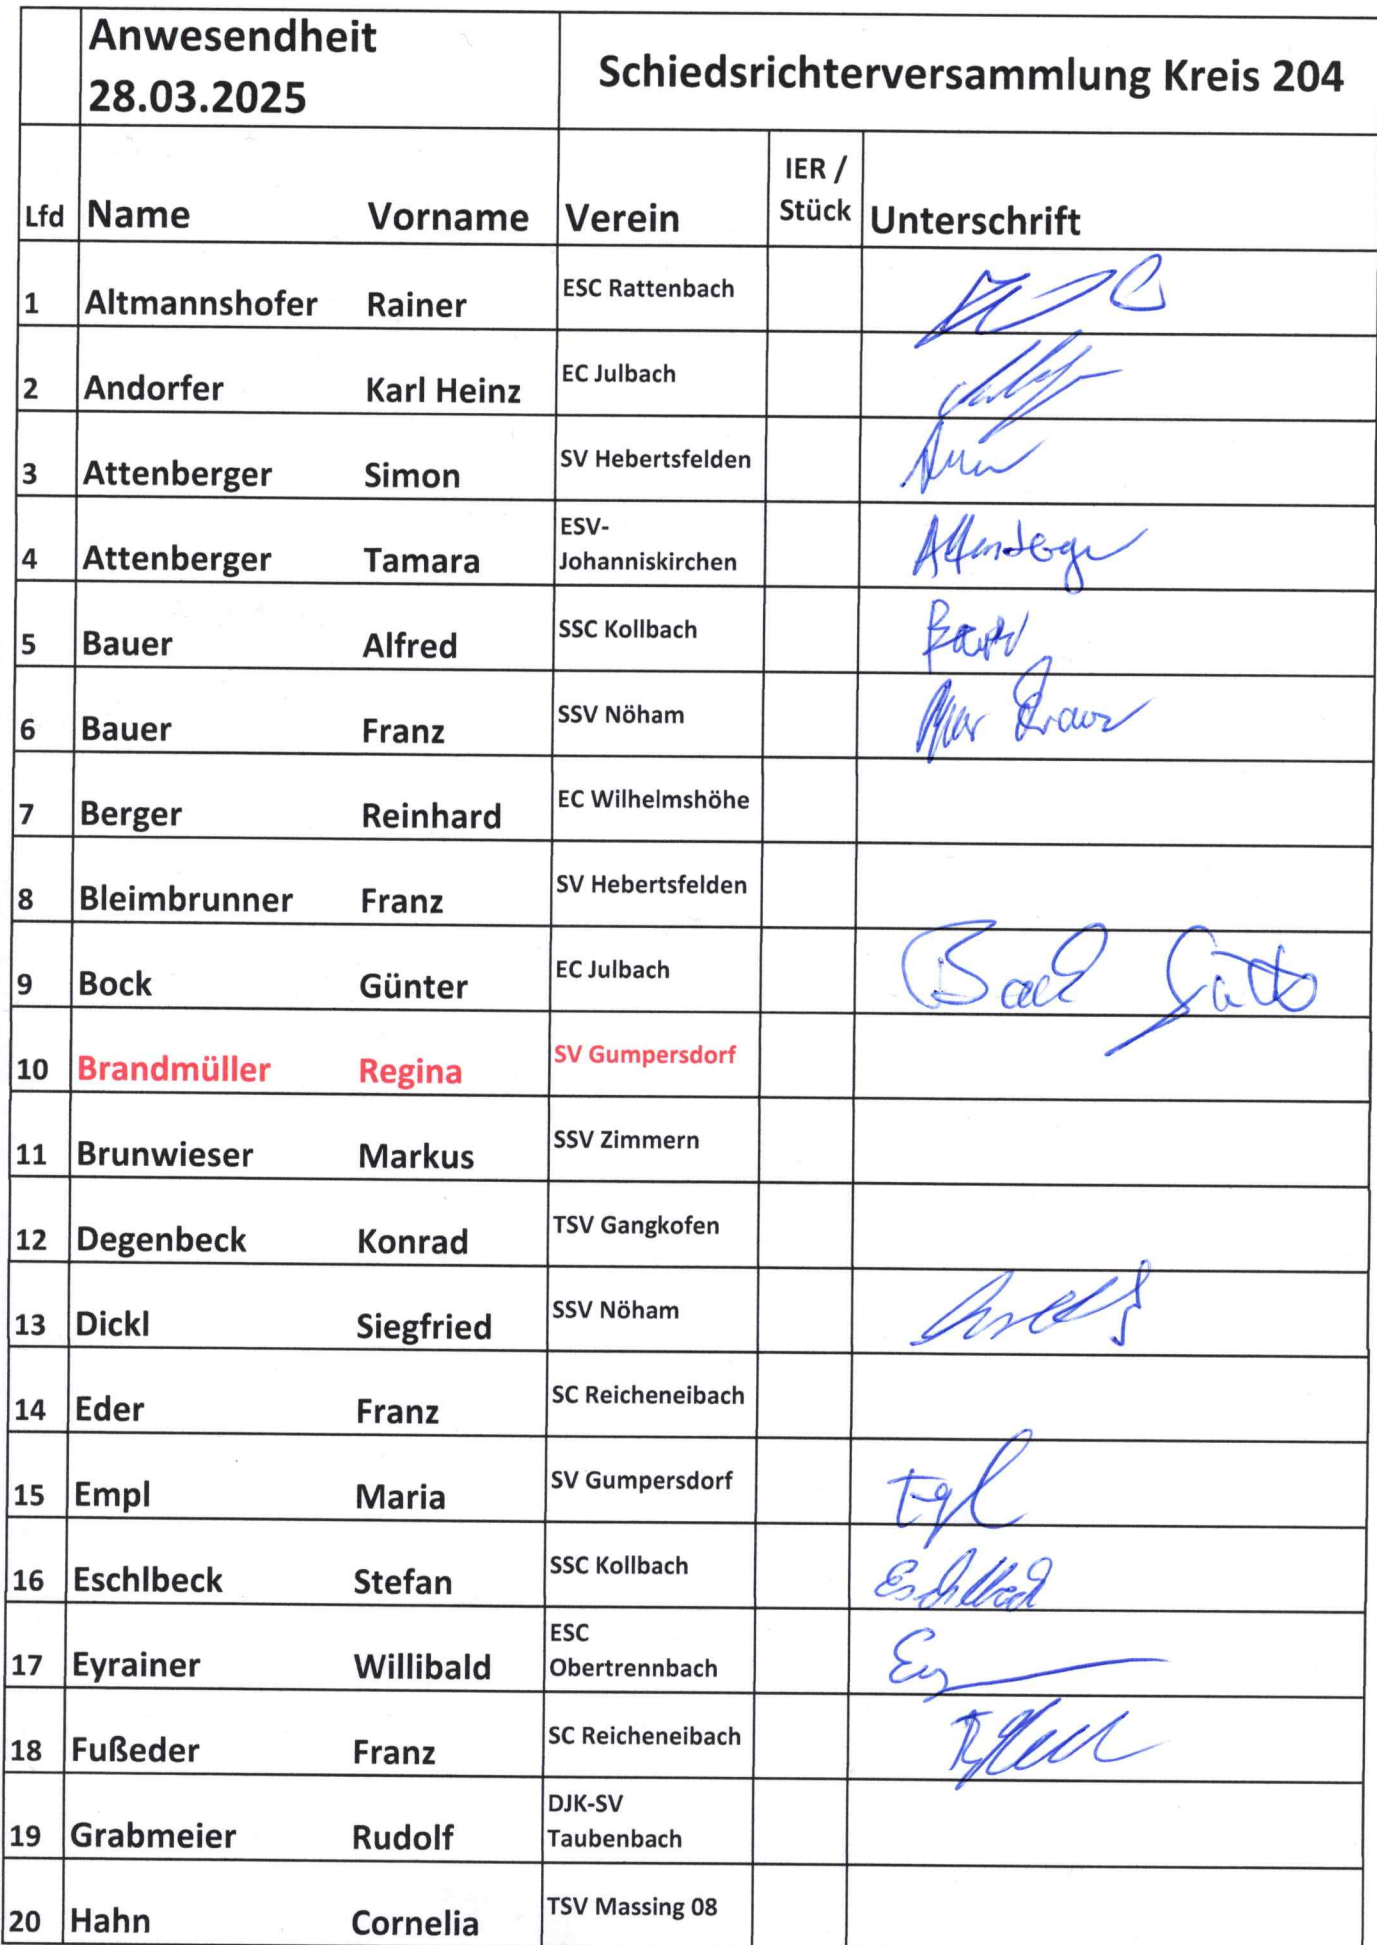 Anwesendheit
28.03.2025
Schiedsrichterversammlung Kreis 204
Lfd Name Vorname Verein IER / Stück Unterschrift
1 Altmannshofer Rainer ESC Rattenbach
2 Andorfer Karl Heinz EC Julbach
3 Attenberger Simon SV Hebertsfelden
4 Attenberger Tamara ESV-
Johanniskirchen Attenberger
5 Bauer Alfred SSC Kollbach Bauer
6 Bauer Franz SSV Nöham Franz
7 Berger Reinhard EC Wilhelmshöhe
8 Bleimbrunner Franz SV Hebertsfelden
9 Bock Günter EC Julbach Bock
10 Brandmüller Regina SV Gumpersdorf
11 Brunwieser Markus SSV Zimmern
12 Degenbeck Konrad TSV Gangkofen
13 Dickl Siegfried SSV Nöham
14 Eder Franz SC Reicheneibach
15 Empl Maria SV Gumpersdorf
16 Eschlbeck Stefan SSC Kollbach Eschlbeck
17 Eyrainer Willibald ESC
Obertrennbach
18 Fußeder Franz SC Reicheneibach
19 Grabmeier Rudolf DJK-SV
Taubenbach
20 Hahn Cornelia TSV Massing 08